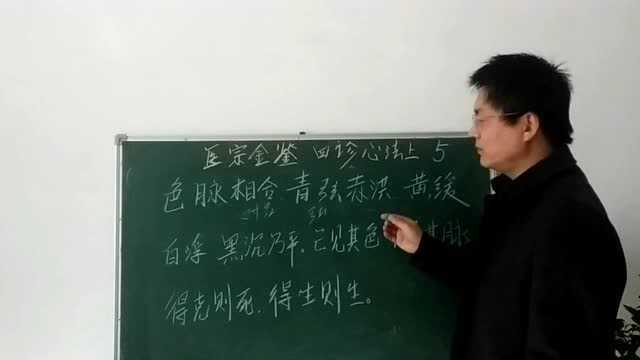 医宗金鉴 四诊心法上 5
色脉相合 青弦赤洪 黄缓
白浮 黑沉乃平,已见其色 其脉
得克则死,得生则生。